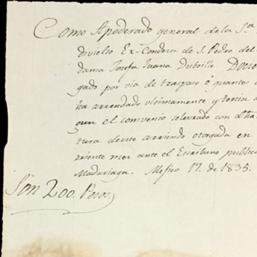 Como Apoderado general de la S.a
Divielso Ex-Condesa de S. Pedro del
dama Josefa Juana
gado por via de traspaso ó guantes
ha arrendado ultimamente y tercia
el convenio celevrado con dha
tura de este arriendo otorgada en
riente mes ante el Escribano publico
Madariaga. Mejico 17. de 1835.
Son 200. Pesos